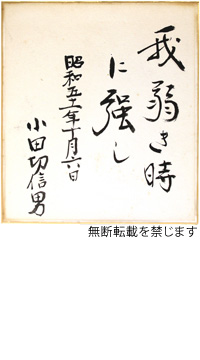 我弱き時
に強し
昭和五十一年十月六日
小田切信男
無断転載を禁じます